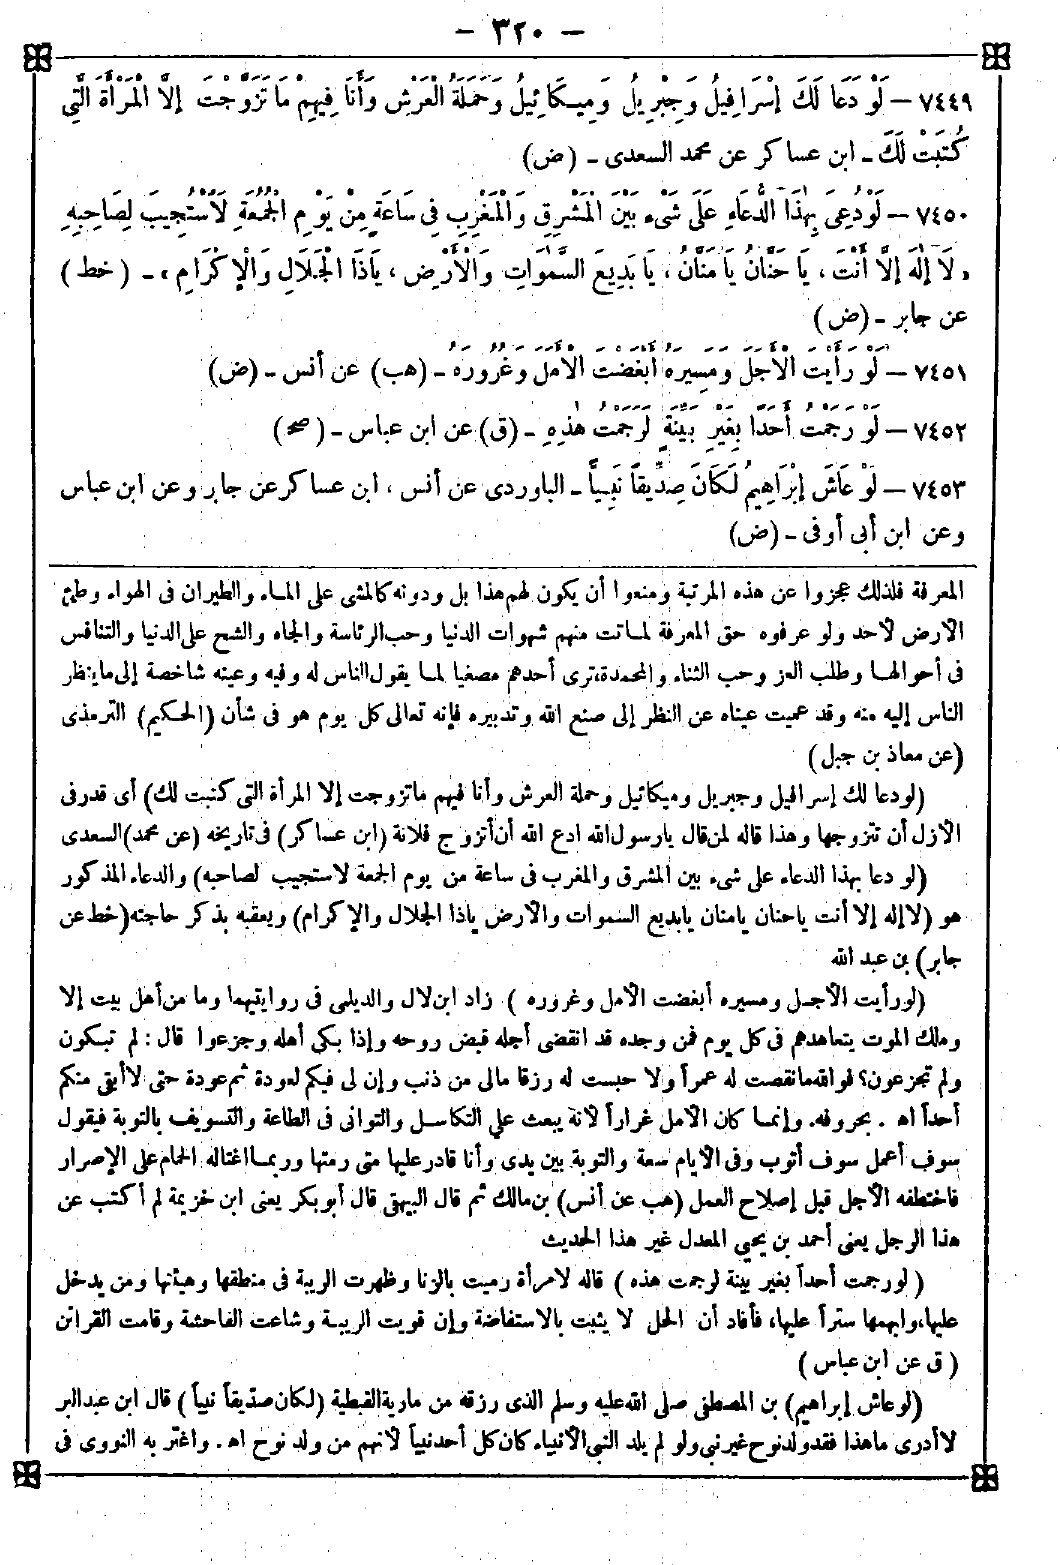 - ٣٢٠ -
٧٤٤٩ - لَوْ دَعَا لَكَ إِسْرَافِيلُ وَجِبْرِيلُ وَمِيكَائِيلُ وَحَمَلَةُ الْعَرْشِ وَأَنَا فِيهِمْ مَا تَزَوَّجْتَ إِلَّا الْمَرْأَةَ الَّتِي
كُتِبَتْ لَكَ - ابن عساكر عن محمد السعدى - (ض)
٧٤٥٠ - لَوْ دُعِىَ بِهٰذَا الدُّعَاءِ عَلَى شَىْءٍ بَيْنَ الْمَشْرِقِ وَالْمَغْرِبِ فِى سَاعَةٍ مِنْ يَوْمِ الْجُمُعَةِ لَاسْتُجِيبَ لِصَاحِبِهِ
«لَا إِلٰهَ إِلَّا أَنْتَ ، يَا حَنَّانُ يَا مَنَّانُ ، يَا بَدِيعَ السَّمٰوَاتِ وَالْأَرْضِ ، يَاذَا الْجَلَالِ وَالْإِكْرَامِ» - (خط)
عن جابر - (ض)
٧٤٥١ - لَوْ رَأَيْتَ الْأَجَلَ وَمَسِيرَهُ أَبْغَضْتَ الْأَمَلَ وَغُرُورَهُ - (هب) عن أنس - (ض)
٧٤٥٢ - لَوْ رَجَمْتُ أَحَدًا بِغَيْرِ بَيِّنَةٍ لَرَجَمْتُ هٰذِهِ - (ق) عن ابن عباس - (صح)
٧٤٥٣ - لَوْ عَاشَ إِبْرَاهِيمُ لَكَانَ صِدِّيقًا نَبِيًّا - الباوردى عن أنس ، ابن عساكر عن جابر وعن ابن عباس
وعن ابن أبى أوفى - (ض)
المعرفة فلذلك عجزوا عن هذه المرتبة ومنعوا أن يكون لهم هذا بل ودونه كالمشى على الماء والطيران فى الهواء وطىّ
الأرض لأحد ولو عرفوه حق المعرفة لماتت منهم شهوات الدنيا وحب الرئاسة والجاه والشح على الدنيا والتنافس
فى أحوالها وطلب العز وحب الثناء والمحمدة، ترى أحدهم مصغيا لما يقول الناس له وفيه وعينه شاخصة إلى ما ينظر
الناس إليه منه وقد عميت عيناه عن النظر إلى صنع الله وتدبيره فإنه تعالى كل يوم هو فى شأن (الحكيم) الترمذى
(عن معاذ بن جبل)
(لودعا لك إسرافيل وجبريل وميكائيل وحملة العرش وأنا فيهم ما تزوجت إلا المرأة التى كتبت لك) أى قدر فى
الأزل أن تتزوجها وهذا قاله لمن قال يارسول الله ادع الله أن أتزوج فلانة (ابن عساكر) فى تاريخه (عن محمد) السعدى
(لو دعا بهذا الدعاء على شىء بين المشرق والمغرب فى ساعة من يوم الجمعة لاستجيب لصاحبه) والدعاء المذكور
هو (لاإله إلا أنت ياحنان يامنان يابديع السموات والأرض ياذا الجلال والإكرام) ويعقبه بذكر حاجته (خط عن
جابر) بن عبد الله
(لورأيت الأجل ومسيره أبغضت الأمل وغروره) زاد ابن لال والديلمى فى روايتهما وما من أهل بيت إلا
وملك الموت يتعاهدهم فى كل يوم فمن وجده قد انقضى أجله قبض روحه وإذا بكى أهله وجزعوا قال : لم تبكون
ولم تجزعون؟ فوالله ما نقصت له عمراً ولا حبست له رزقا مالى من ذنب وإن لى فيكم لعودة ثم عودة حتى لا أبقى منكم
أحداً اه . بحروفه. وإنما كان الأمل غراراً لأنه يبعث على التكاسل والتوانى فى الطاعة والتسويف بالتوبة فيقول
سوف أعمل سوف أتوب وفى الأيام سعة والتوبة بين يدى وأنا قادر عليها متى رمتها وربما اغتاله الحمام على الإصرار
فاختطفه الأجل قبل إصلاح العمل (هب عن أنس) بن مالك ثم قال البيهقى قال أبو بكر يعنى ابن خزيمة لم أكتب عن
هذا الرجل يعنى أحمد بن يحيى المعدل غير هذا الحديث
(لورجمت أحداً بغير بينة لرجمت هذه) قاله لامرأة رميت بالزنا وظهرت الريبة فى منطقها وهيئتها ومن يدخل
عليها، وابهمها ستراً عليها، فأفاد أن الحل لا يثبت بالاستفاضة وإن قويت الريبة وشاعت الفاحشة وقامت القرائن
(ق عن ابن عباس)
(لو عاش إبراهيم) بن المصطفى صلى الله عليه وسلم الذى رزقه من مارية القبطية (لكان صديقاً نبياً) قال ابن عبد البر
لا أدرى ما هذا فقد ولد نوح غير نبى ولو لم يلد النبى الأنبياء كان كل أحد نبياً لأنهم من ولد نوح اه. واغتر به النووى فى